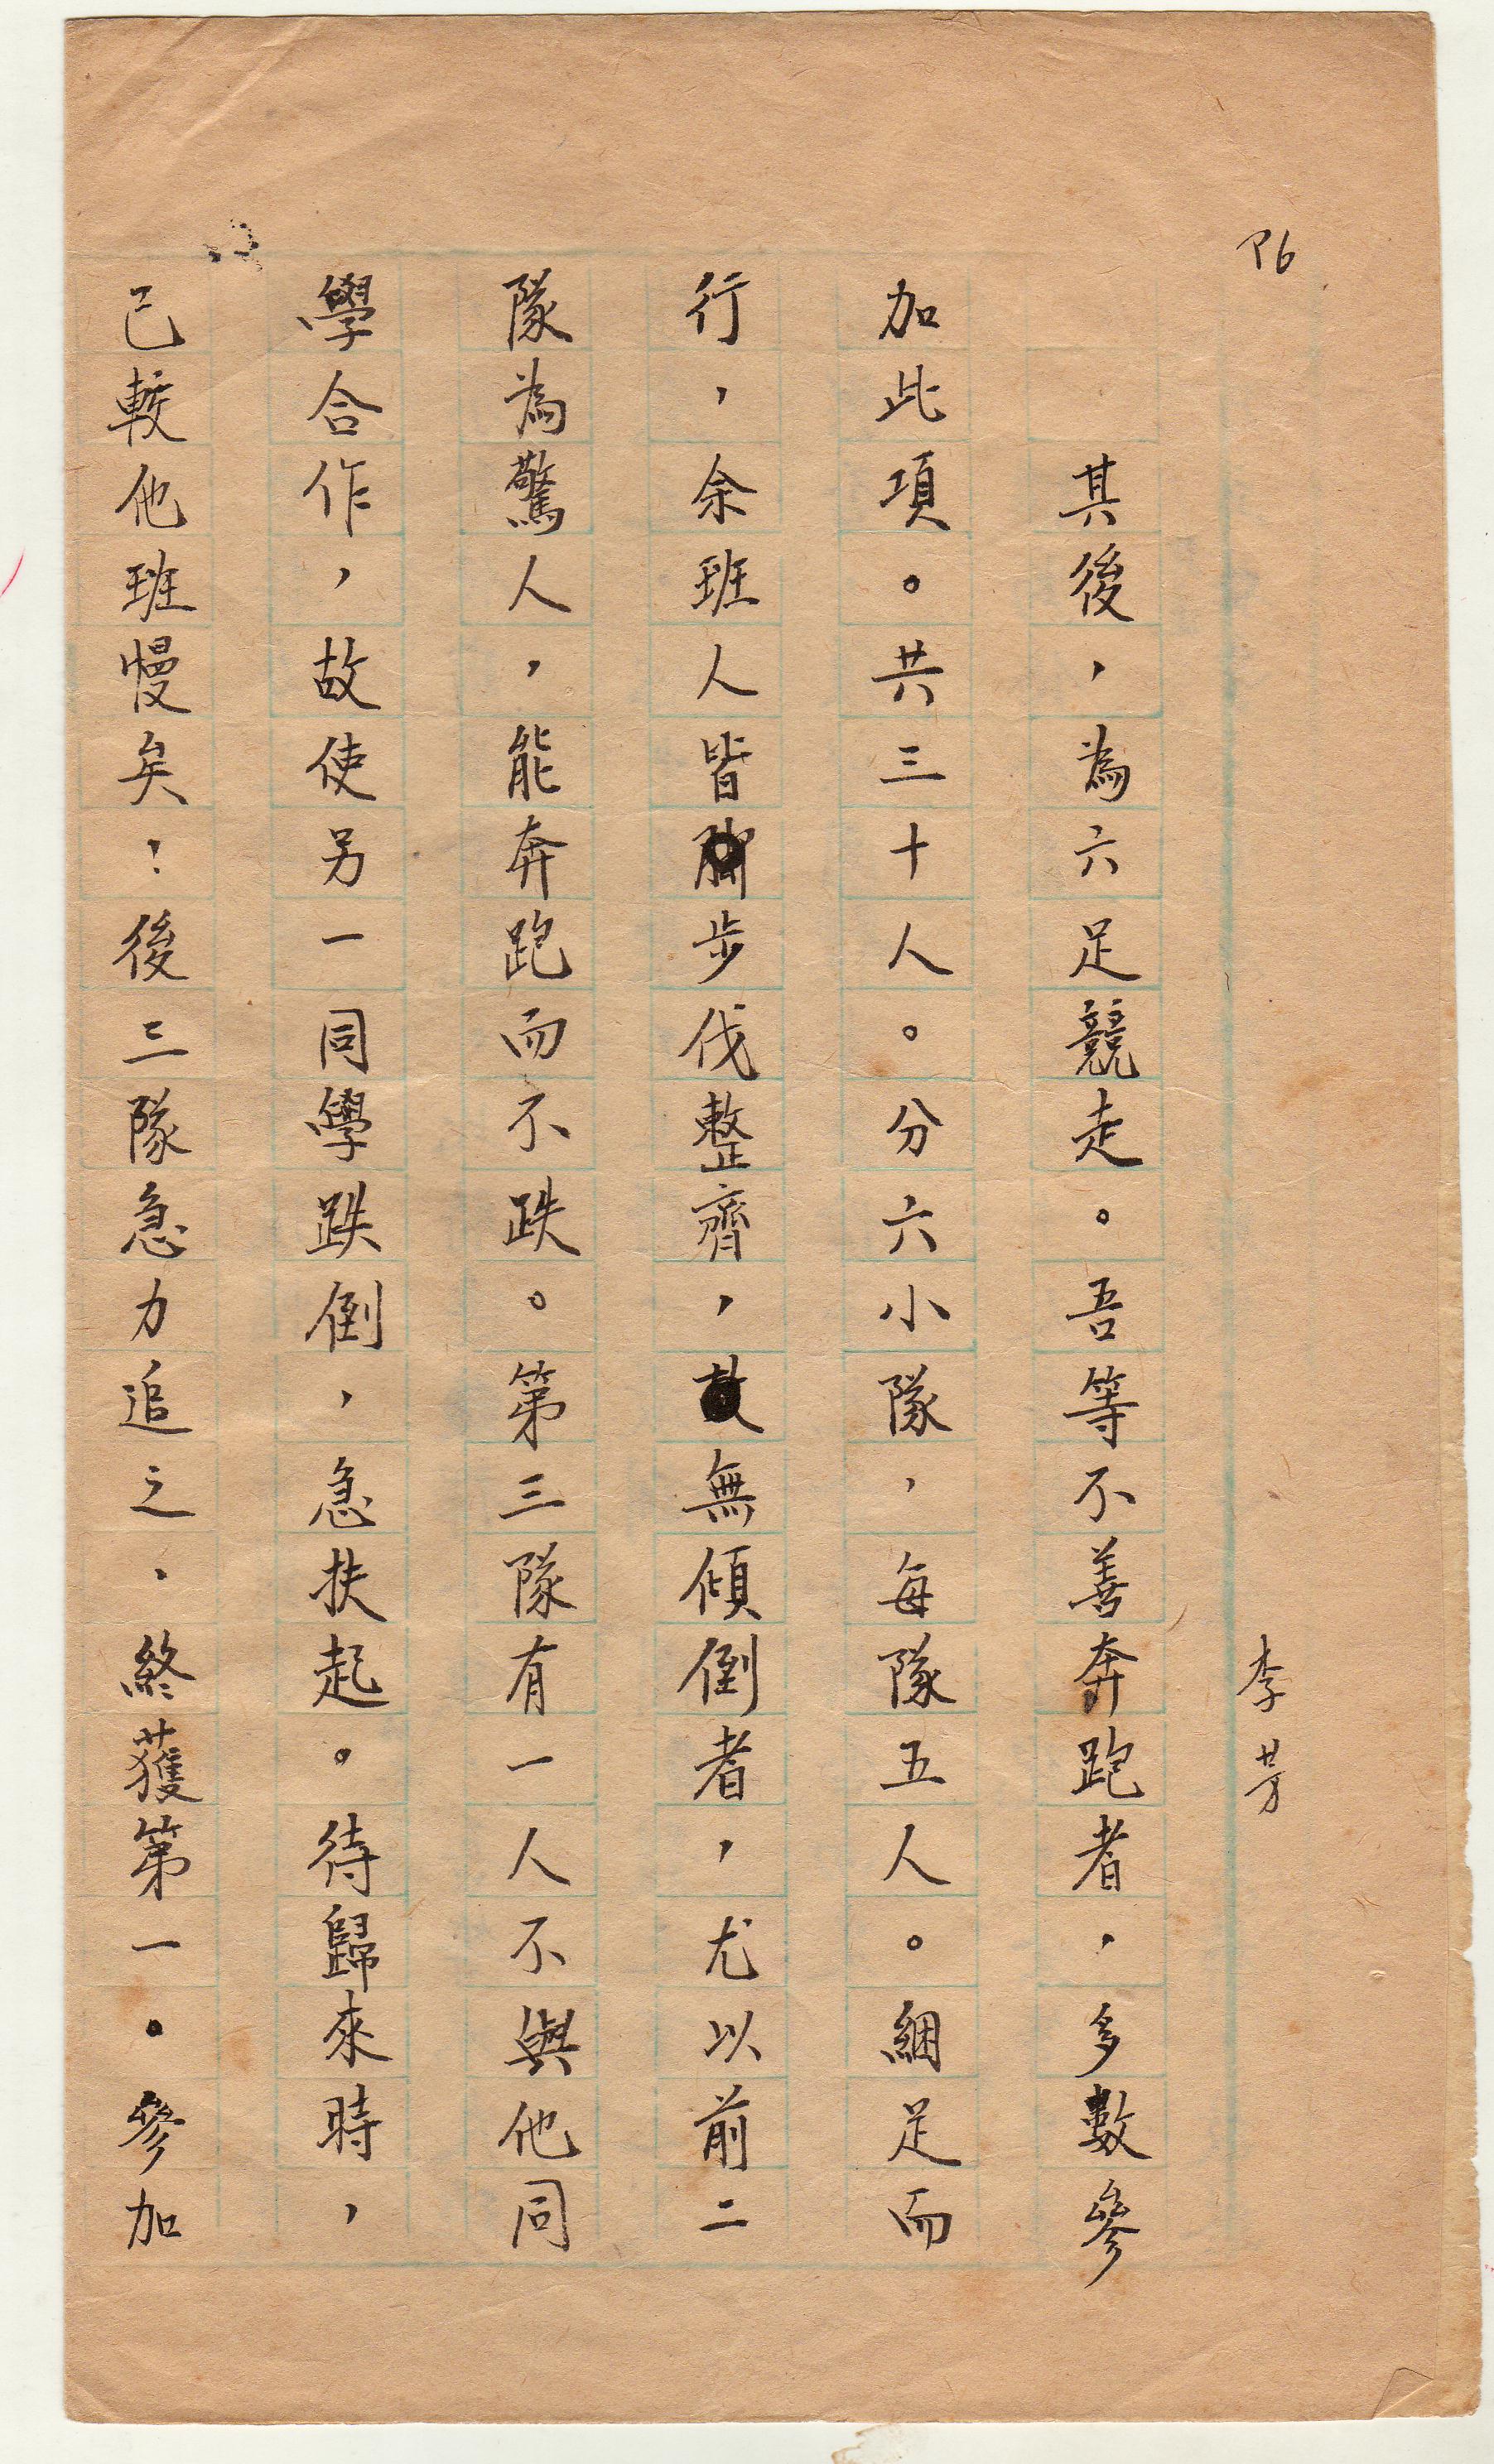 P6
李芳
其後，為六足競走。吾等不善奔跑者，多數參
加此項。共三十人。分六小隊，每隊五人。綑足而
行，余班人皆腳步伐整齊，故無傾倒者，尤以前二
隊為驚人，能奔跑而不跌。第三隊有一人不與他同
學合作，故使另一同學跌倒，急扶起。待歸來時，
已較他班慢矣！後三隊急力追之、終獲第一。參加